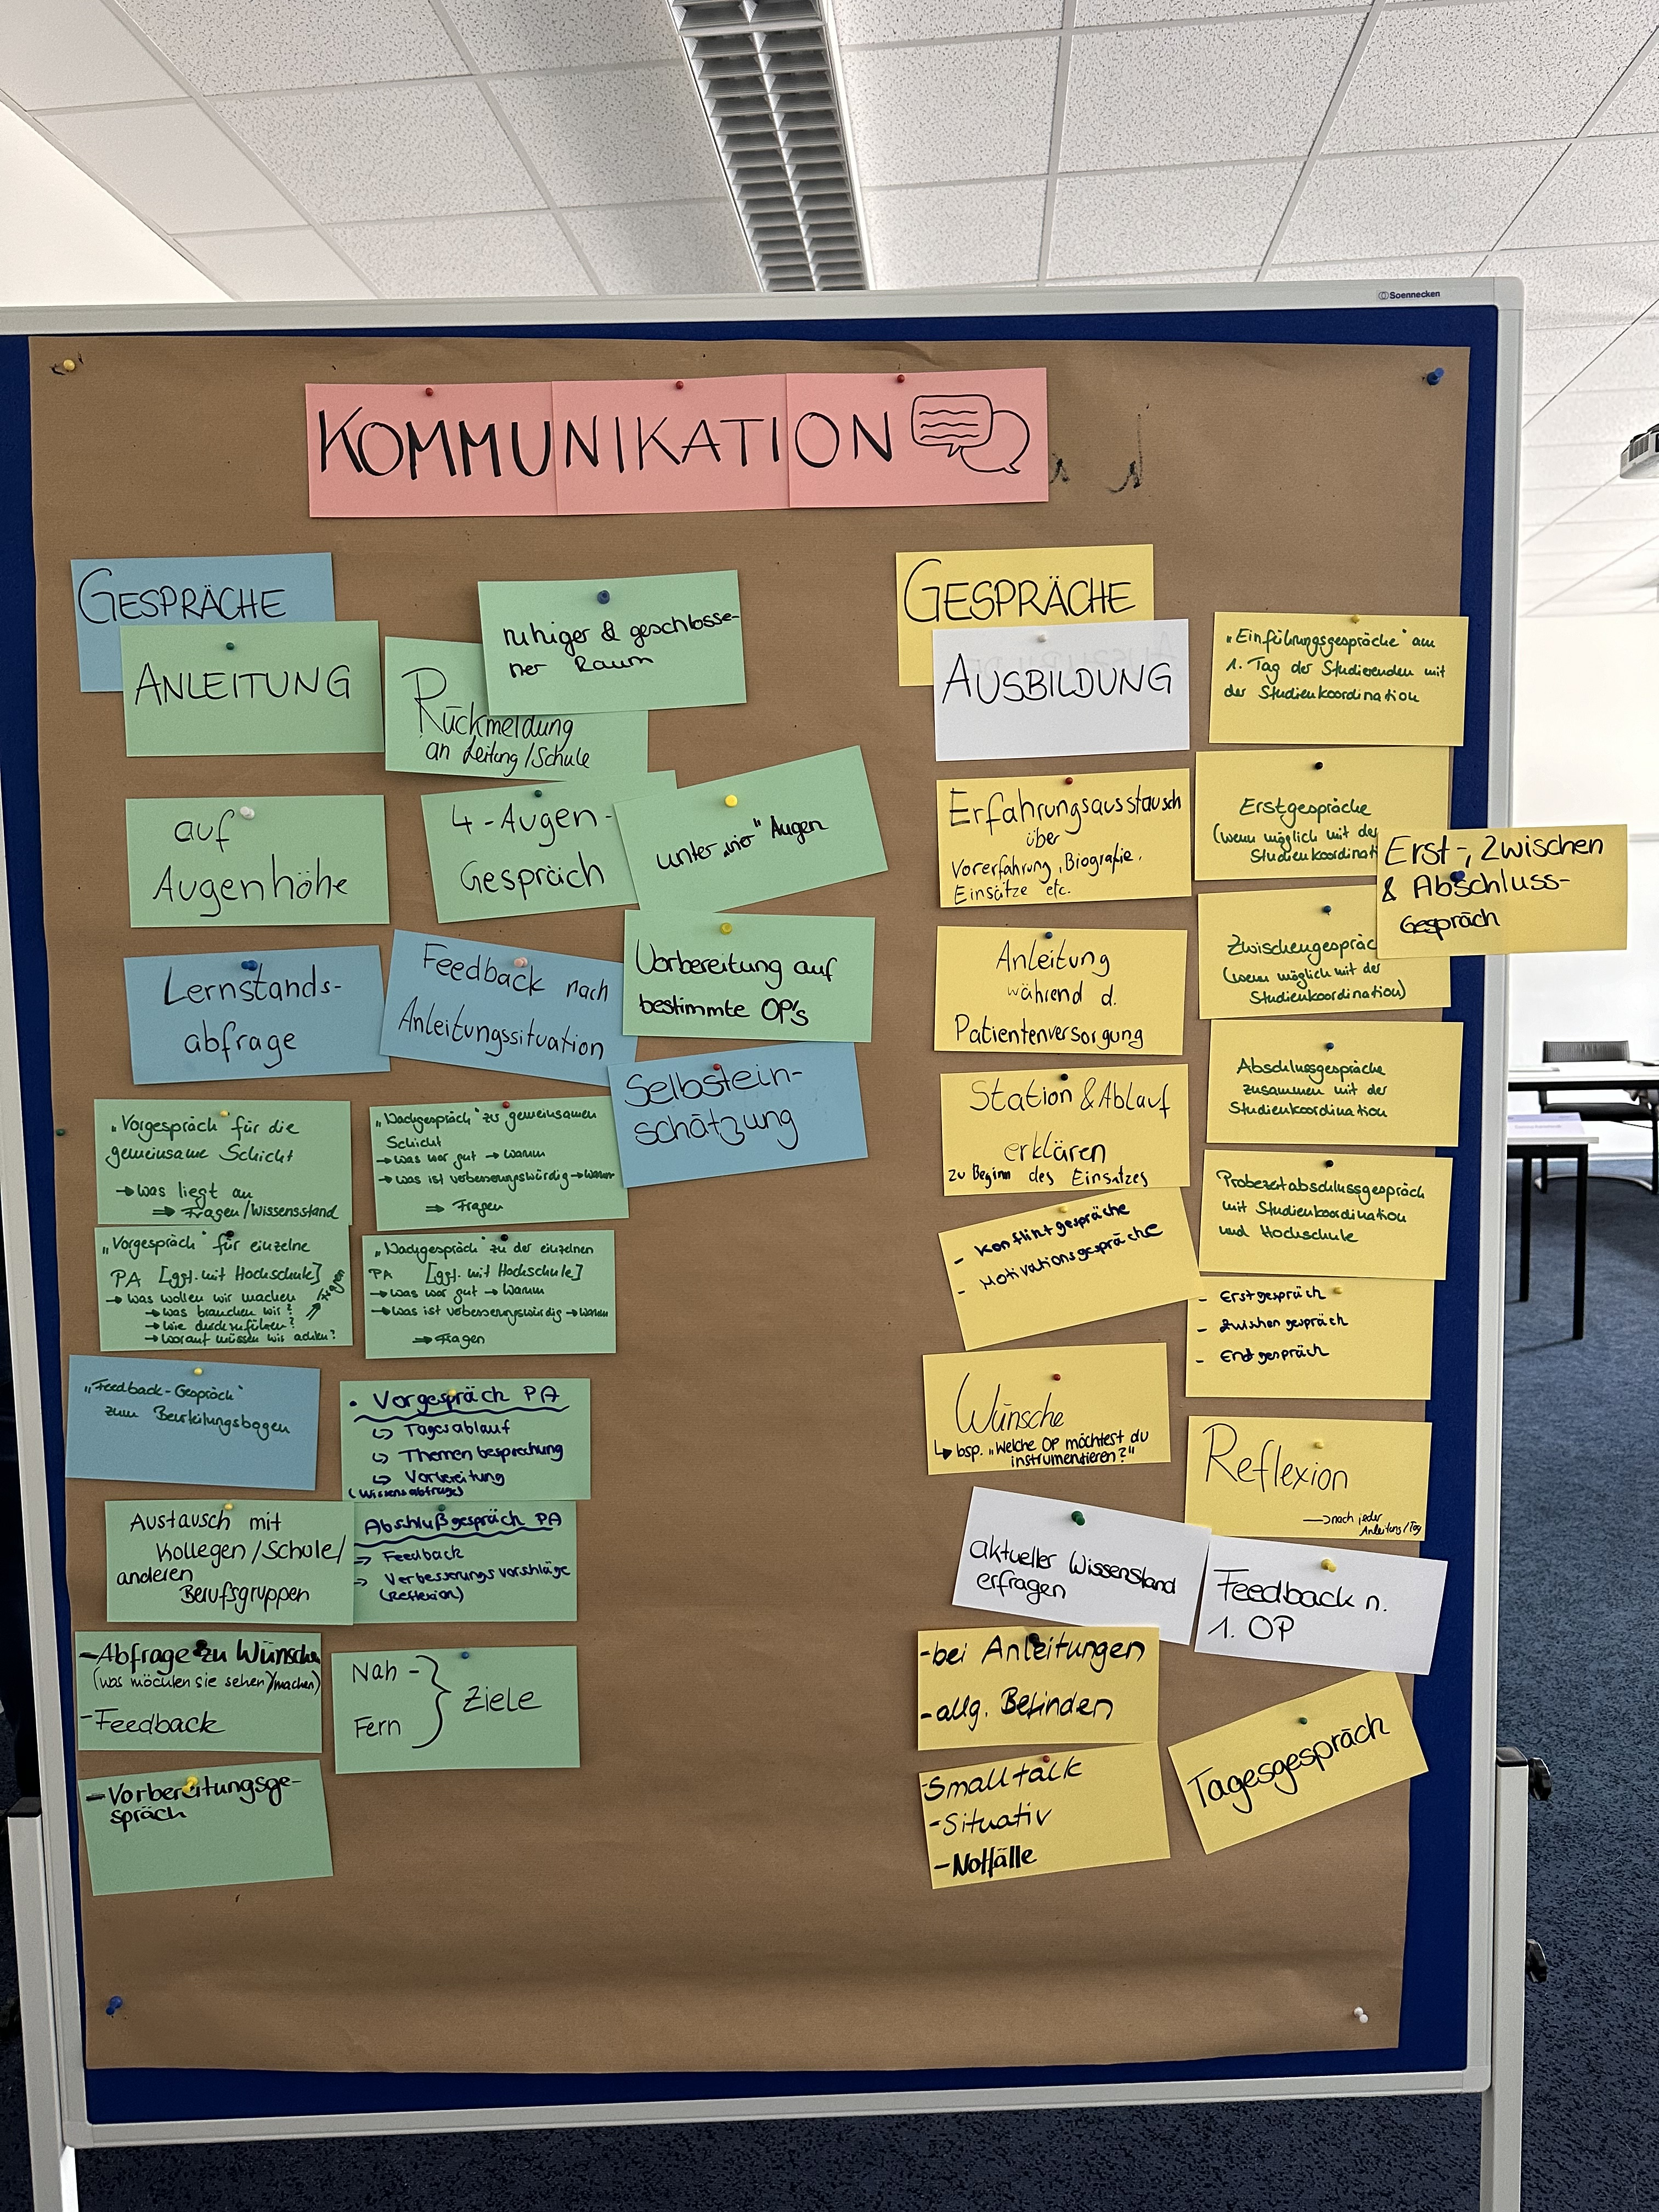 Soennecken
KOMMUNIKATION
GESPRÄCHE
ANLEITUNG
Rückmeldung
an Leitung/Schule
ruhiger & geschlosse-
ner Raum
auf
Augenhöhe
4-Augen-
Gespräch
unter „vier" Augen
Lernstands-
abfrage
Feedback nach
Anleitungssituation
Vorbereitung auf
bestimmte OP's
Selbstein-
schätzung
„Vorgespräch" für die
gemeinsame Schicht
→ was liegt an
⇒ Fragen/Wissensstand
„Nachgespräch" zu gemeinsamen
Schicht
→ was war gut → warum
→ was ist verbesserungswürdig → warum
⇒ Fragen
„Vorgespräch" für einzelne
PA [ggf. mit Hochschule]
→ was wollen wir machen
→ was brauchen wir?
→ wie durchführen?
→ worauf müssen wir achten?
⇒ Fragen
„Nachgespräch" zu der einzelnen
PA [ggf. mit Hochschule]
→ was war gut → warum
→ was ist verbesserungswürdig → warum
⇒ Fragen
„Feedback-Gespräch"
zum Beurteilungsbogen
• Vorgespräch PA
↳ Tagesablauf
↳ Themen besprechung
↳ Vorbereitung
(Wissensabfrage)
Austausch mit
Kollegen/Schule/
anderen
Berufsgruppen
Abschlußgespräch PA
→ Feedback
→ Verbesserungsvorschläge
(Reflexion)
- Abfrage zu Wünsche
(was möchten sie sehen/machen)
- Feedback
Nah -
Fern } Ziele
- Vorbereitungsge-
spräch
GESPRÄCHE
AUSBILDUNG
„Einführungsgespräche" am
1. Tag der Studierenden mit
der Studienkoordination
Erfahrungsausstausch
über
Vorerfahrung, Biografie,
Einsätze etc.
Erstgespräche
(wenn möglich mit der
Studienkoordinati
Erst-, Zwischen
& Abschluss-
Gespräch
Anleitung
während d.
Patientenversorgung
Zwischengespräc
(wenn möglich mit der
Studienkoordination)
Station & Ablauf
erklären
zu Beginn des Einsatzes
Abschlussgespräche
zusammen mit der
Studienkoordination
- Konfliktgespräche
- Motivationsgespräche
Probezeitabschlussgespräch
mit Studienkoordination
und Hochschule
- Erstgespräch
- Zwischengespräch
- Endgespräch
Wünsche
↳ bsp. „Welche OP möchtest du
instrumentieren?"
Reflexion
→ nach jeder
Anleitung/Tag
aktueller Wissenstand
erfragen
Feedback n.
1. OP
- bei Anleitungen
- allg. Befinden
- Smalltalk
- Situativ
- Notfälle
Tagesgespräch